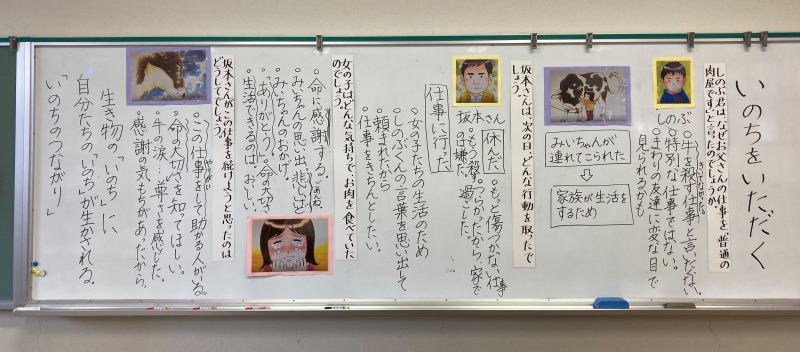 いのちをいただく
しのぶ君は、なぜお父さんの仕事を「普通の
肉屋です」と言ったのでしょうか。
しのぶ
○牛を殺す仕事と言いたくない
○特別な仕事ではない。
○まわりの友達に変な目で
見られるかも
みいちゃんが
連れてこられた
家族が生活を
するため
坂本さんは、次の日、どんな行動を取ったで
しょう。
坂本さん
休んだ
○もっと傷つかない仕事
○つらかったから、家で
過ごした。
○もう殺す
のは嫌だ
仕事に行った
○女の子たちの生活のため
○しのぶくんの言葉を思い出して
○頼まれたから
○仕事をきちんとしたい。
女の子は、どんな気持ちで、お肉を食べていた
のでしょう。
○命に感謝する
○みいちゃんの思い出 悲しいけど
○みいちゃんのおかげ。
○「ありがとう」 命の大切さ
○生活できるのは。 おいしい
坂本さんがこの仕事を続けようと思ったのは
どうしてでしょう。
○この仕事をして助かる人がいる。
○命の大切さを知ってほしい。
○牛の涙…尊さを感じた。
○感謝の気もちがあったから。
生き物の「いのち」に
自分たちの「いのち」が生かされる。
「いのちのつながり」